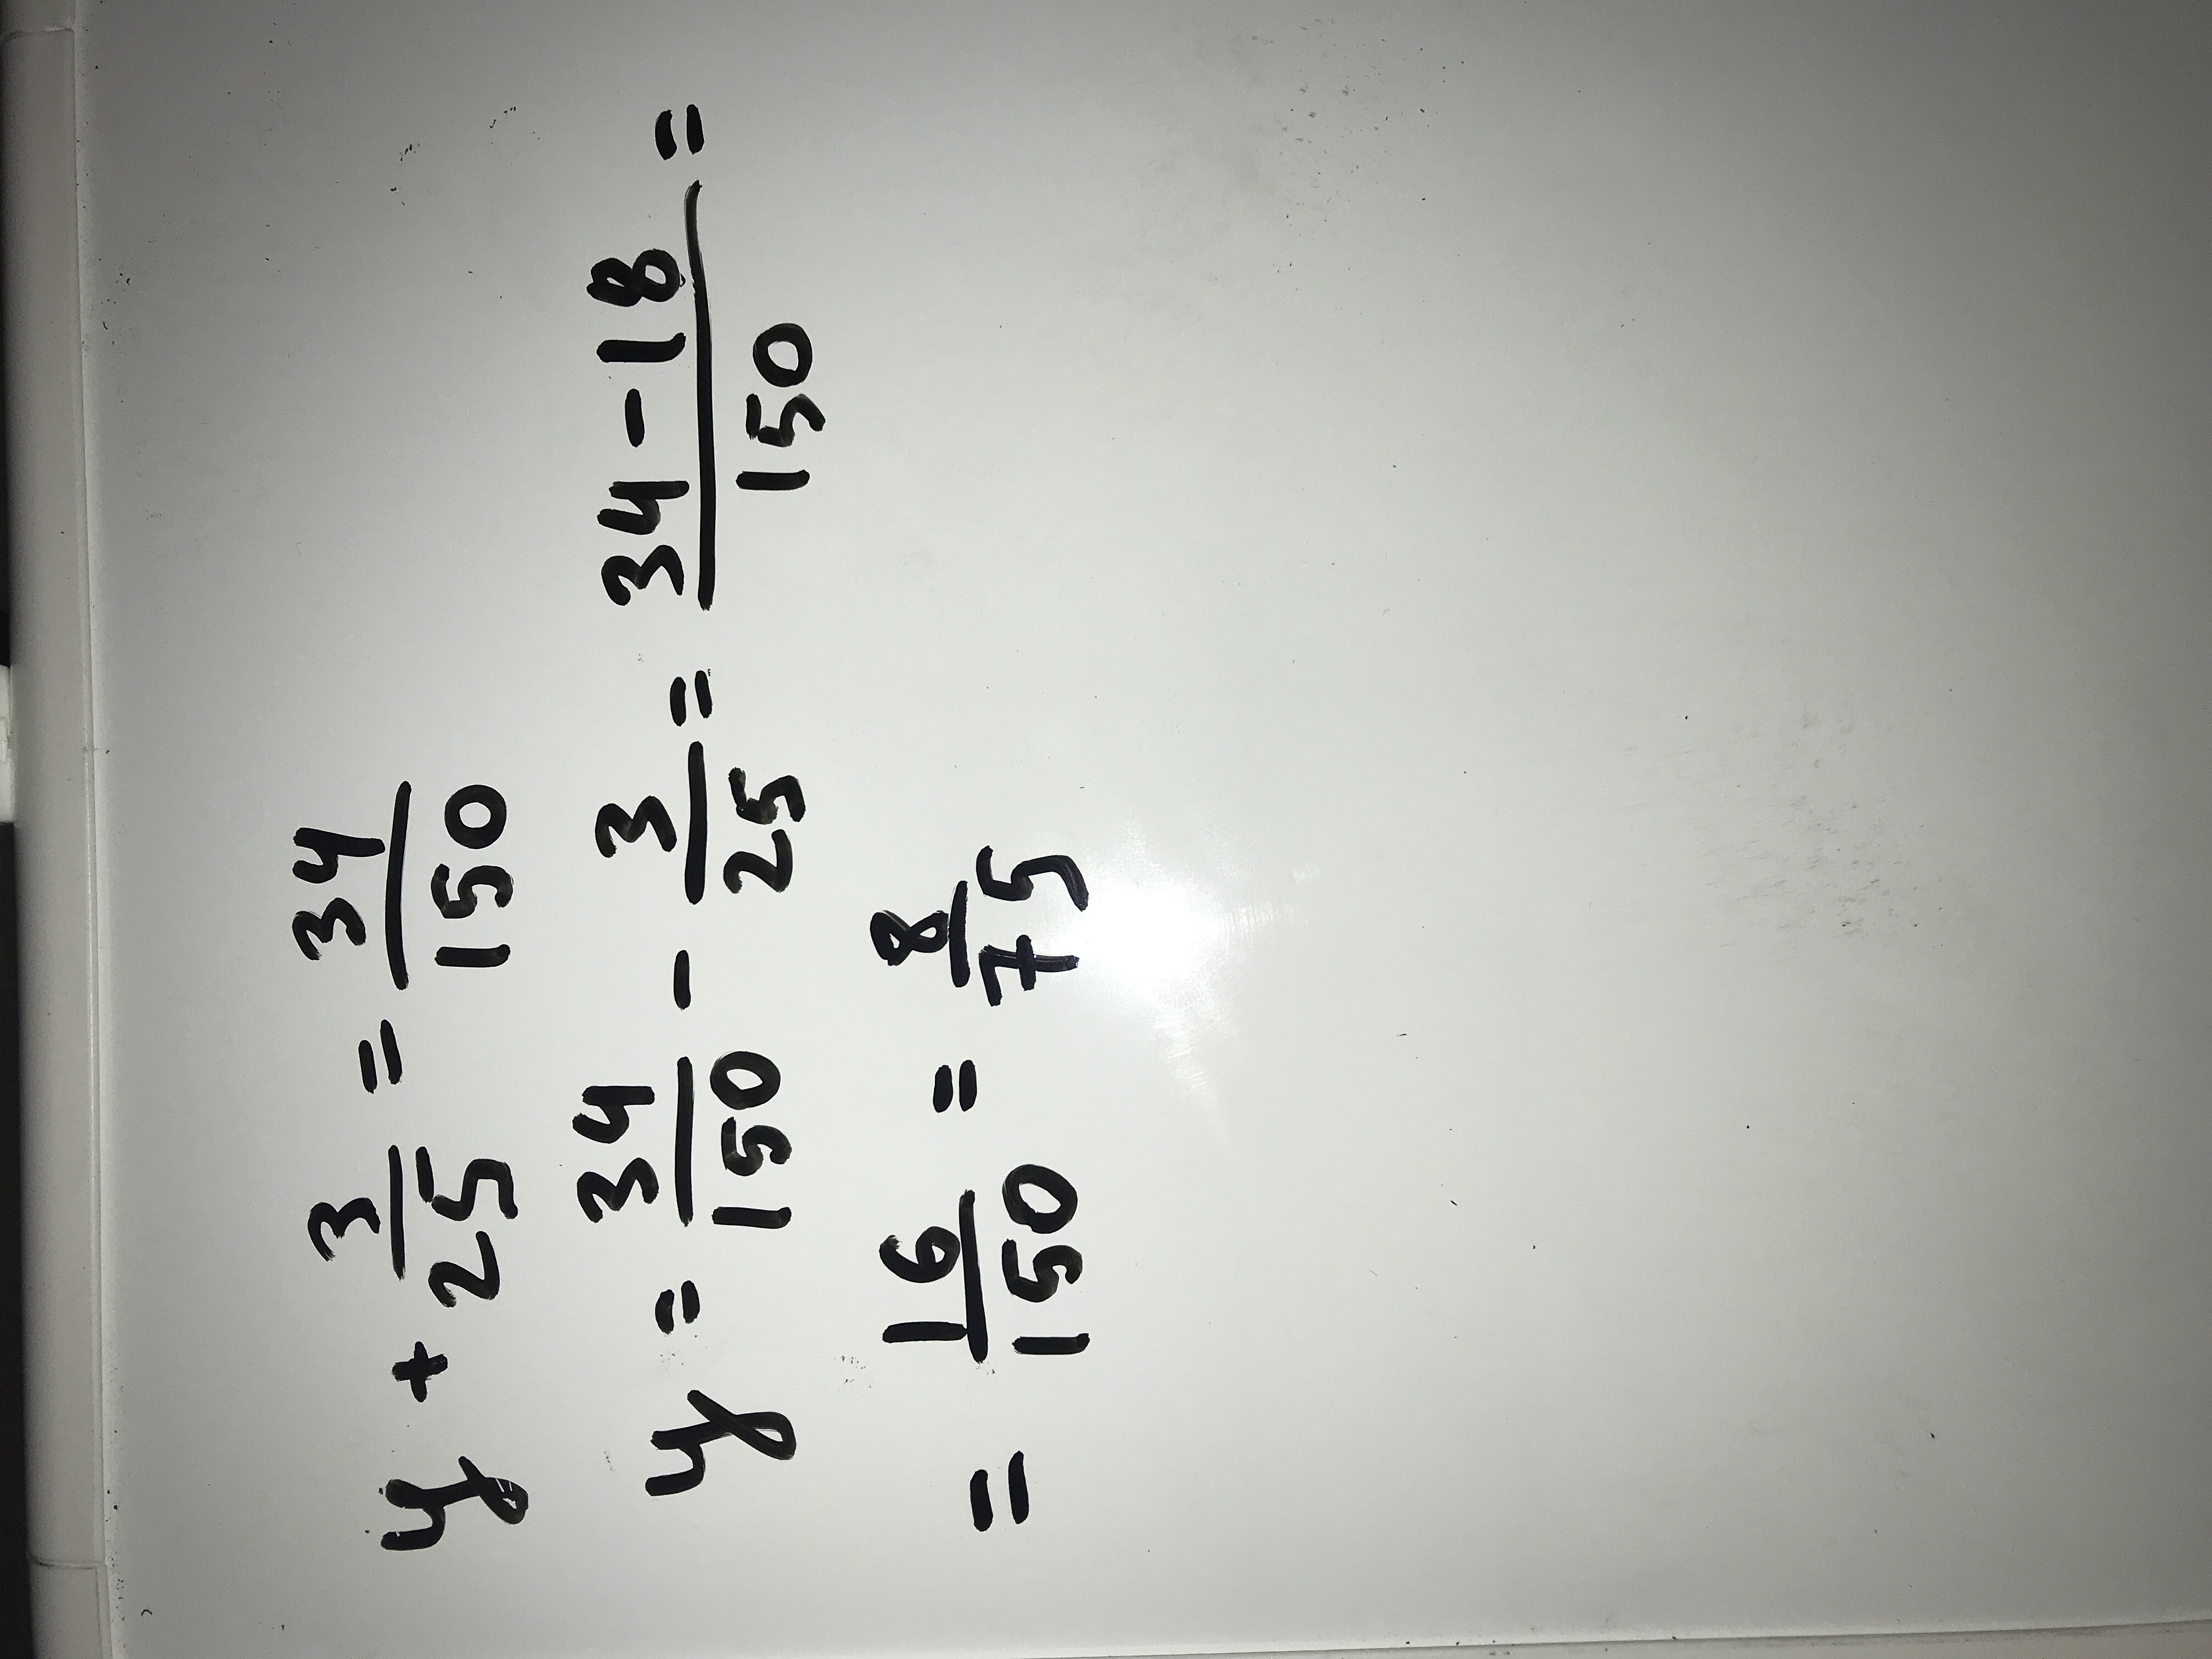 y + 3/25 = 34/150
y = 34/150 - 3/25 = 34-18/150 =
= 16/150 = 8/75